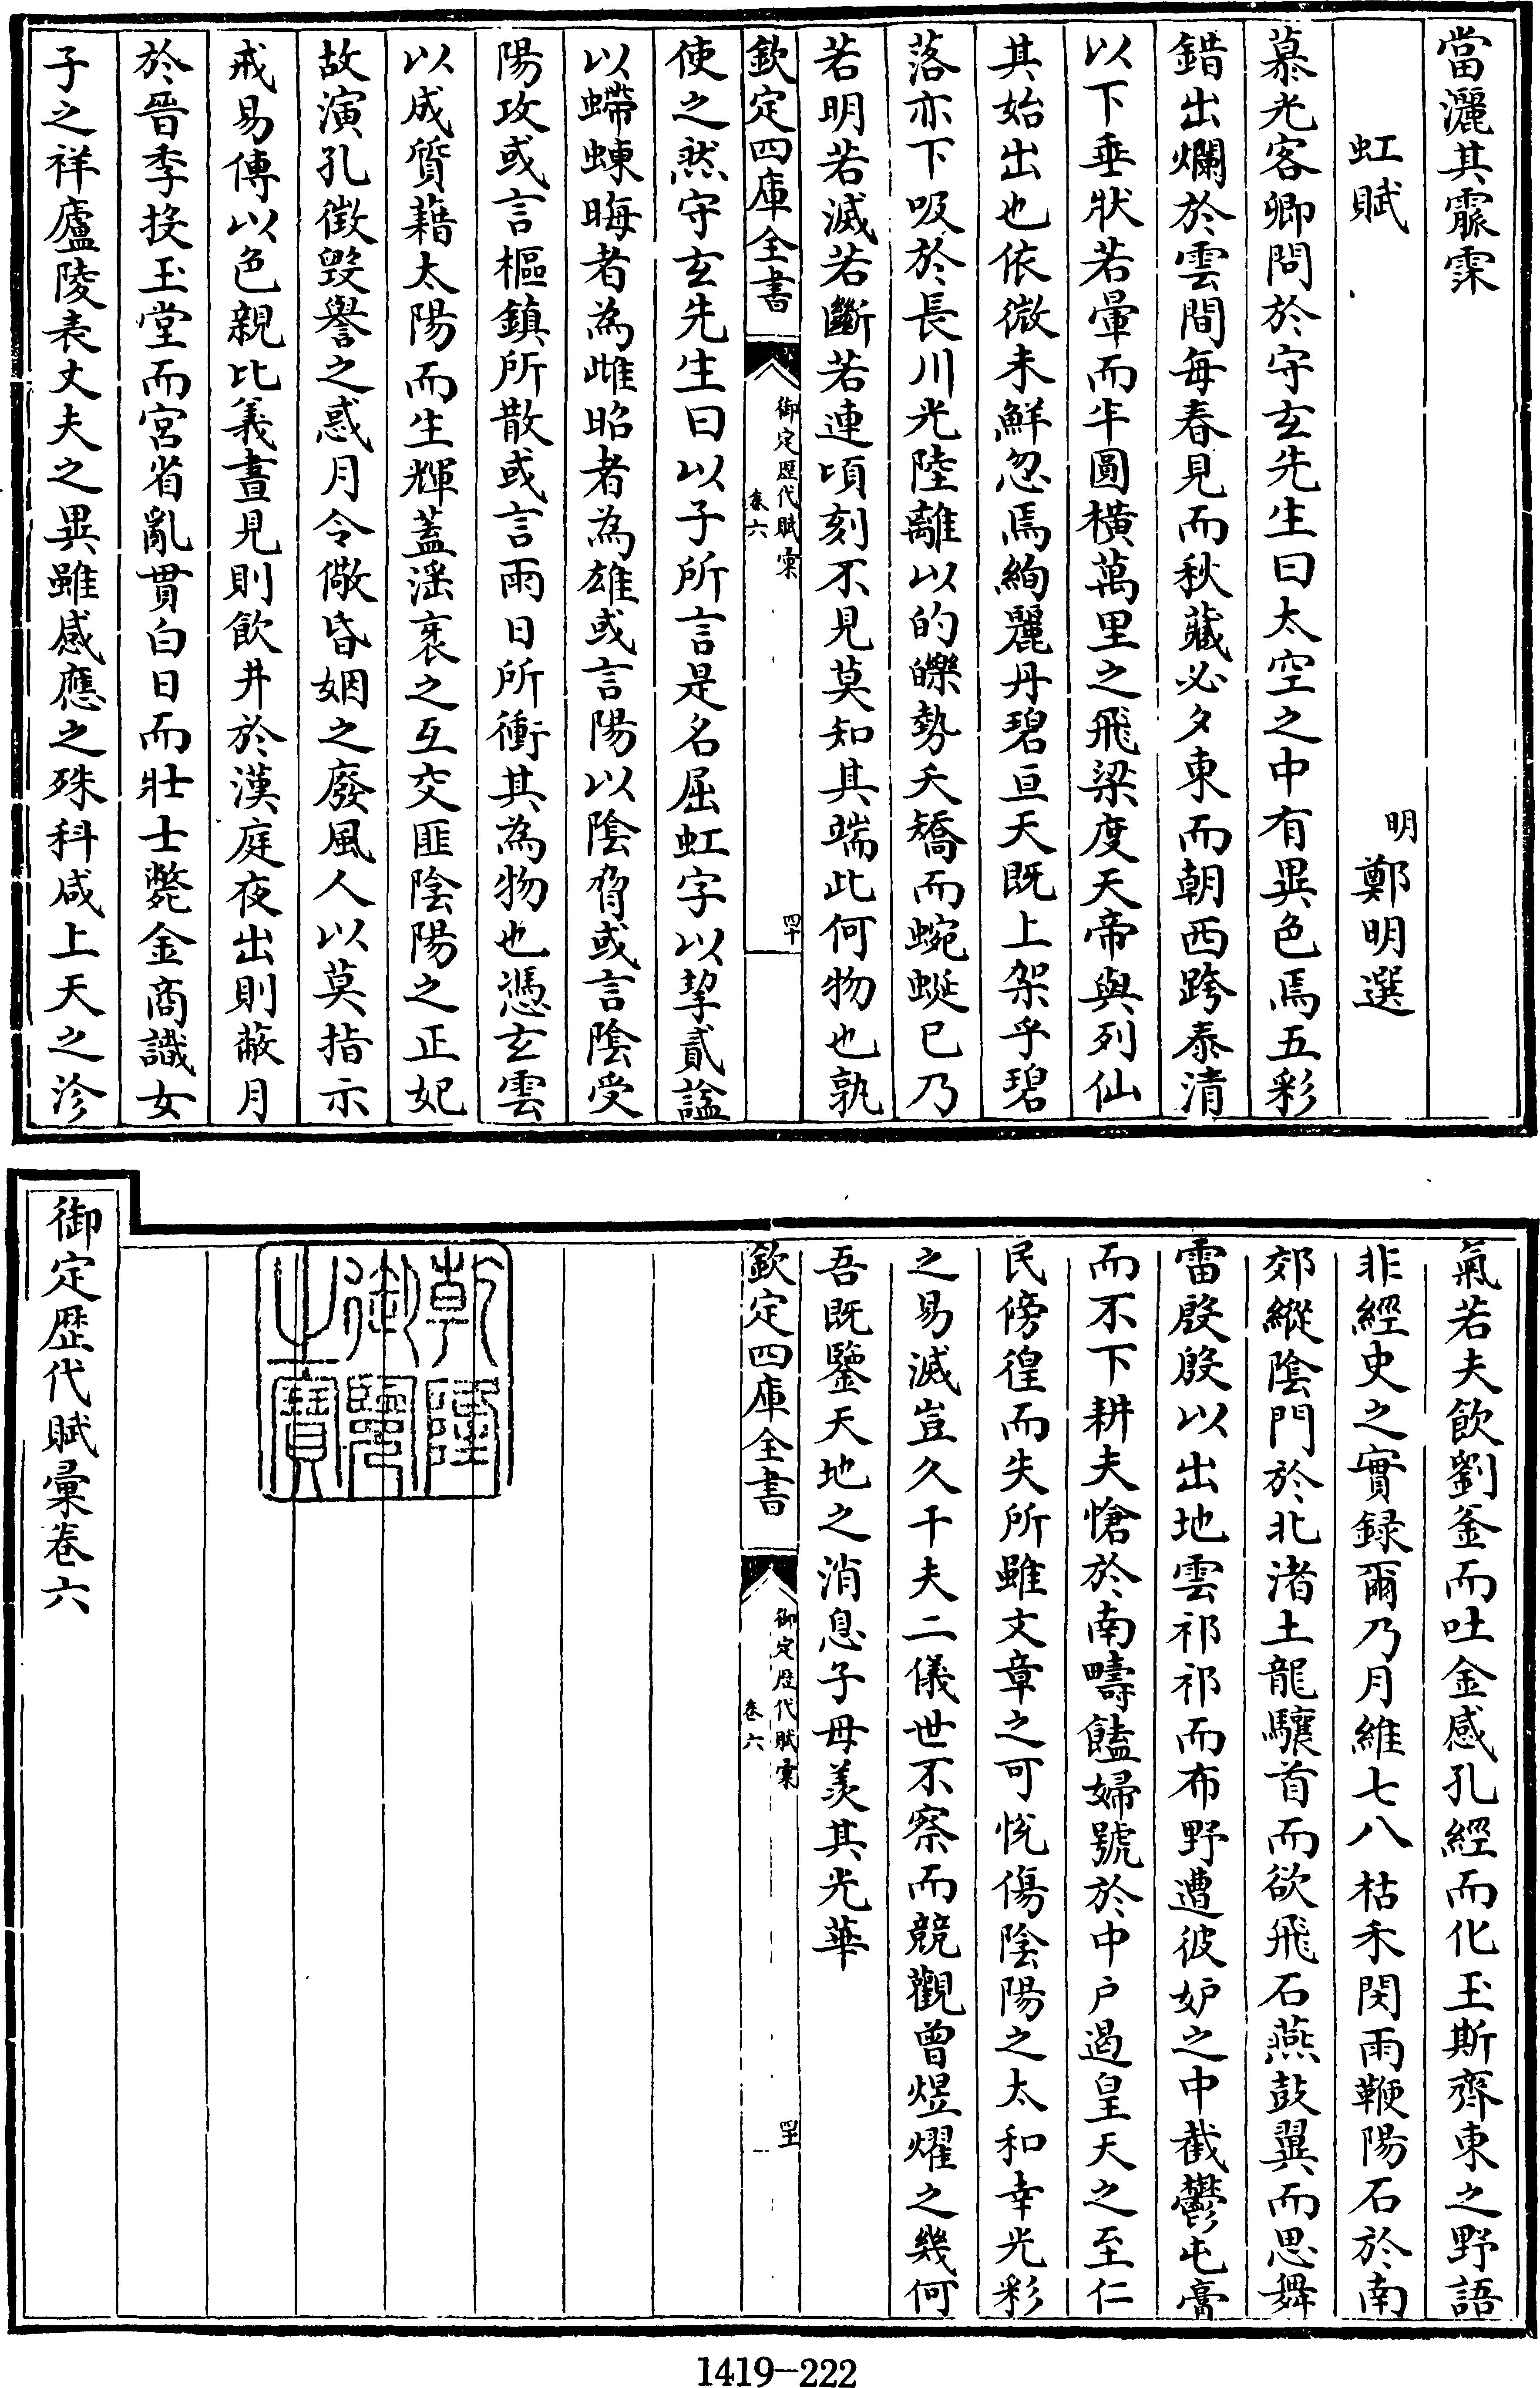 當灑其霢霂
虹賦
明鄭明選
慕光客卿問於守玄先生曰太空之中有異色焉五彩
錯出爛於雲間每春見而秋藏必夕東而朝西跨泰清
以下垂狀若暈而半圓橫萬里之飛梁度天帝與列仙
其始出也依微未鮮忽焉絢麗丹碧亘天既上架乎碧
落亦下吸於長川光陸離以的皪勢夭矯而蜿蜒已乃
若明若滅若斷若連頃刻不見莫知其端此何物也孰
欽定四庫全書
御定歴代賦彙
卷六
四十
使之然守玄先生曰以子所言是名屈虹字以挈貳諡
以螮蝀晦者為雌昭者為雄或言陽以陰脅或言陰受
陽攻或言樞鎮所散或言雨日所衝其為物也憑玄雲
以成質藉太陽而生輝蓋滛衺之互交匪陰陽之正妃
故演孔徵毀譽之惑月令儆昏姻之廢風人以莫指示
戒易傳以色親比義晝見則飲井於漢庭夜出則蔽月
於晉季投玉堂而宮省亂貫白日而壯士斃金商識女
子之祥廬陵表丈夫之異雖感應之殊科咸上天之沴
氣若夫飲劉釜而吐金感孔經而化玉斯齊東之野語
非經史之實録爾乃月維七八枯禾閔雨鞭陽石於南
郊縱陰門於北渚土龍驤首而欲飛石燕鼓翼而思舞
雷殷殷以出地雲祁祁而布野遭彼妒之中截鬱屯膏
而不下耕夫愴於南疇饁婦號於中户遏皇天之至仁
民傍徨而失所雖文章之可悅傷陰陽之太和幸光彩
之易滅豈久干夫二儀世不察而競觀曾煜燿之幾何
吾既鑒天地之消息子毋羨其光華
欽定四庫全書
御定歴代賦彙
卷六
四十一
乾隆御覽之寶
御定歴代賦彙卷六
1419-222